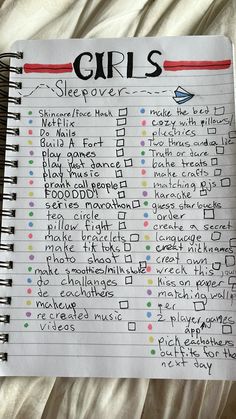 GIRLS
Sleepover
Skincare/Face Mask
Netflix
Do Nails
Build A Fort
play games
play just dance
play music
prank call people
FOOODDDD!
series marathon
tea circle
pillow fight
make bracelets
make tik toks
photo shoot
make smoothies/milkshake
do challanges
do eachothers
makeup
recreated music
videos
make the bed
cozy with pillows/
plushies
Two thrus and a lie
Truth or dare
bake treats
make crafts
matching pjs
karaoke
guess starbucks
order
create a secret
language
creat nicknames
creat own
wreck this
Kiss on paper
matching wall
2 player games
app
pick eachothers
outfits for the
next day